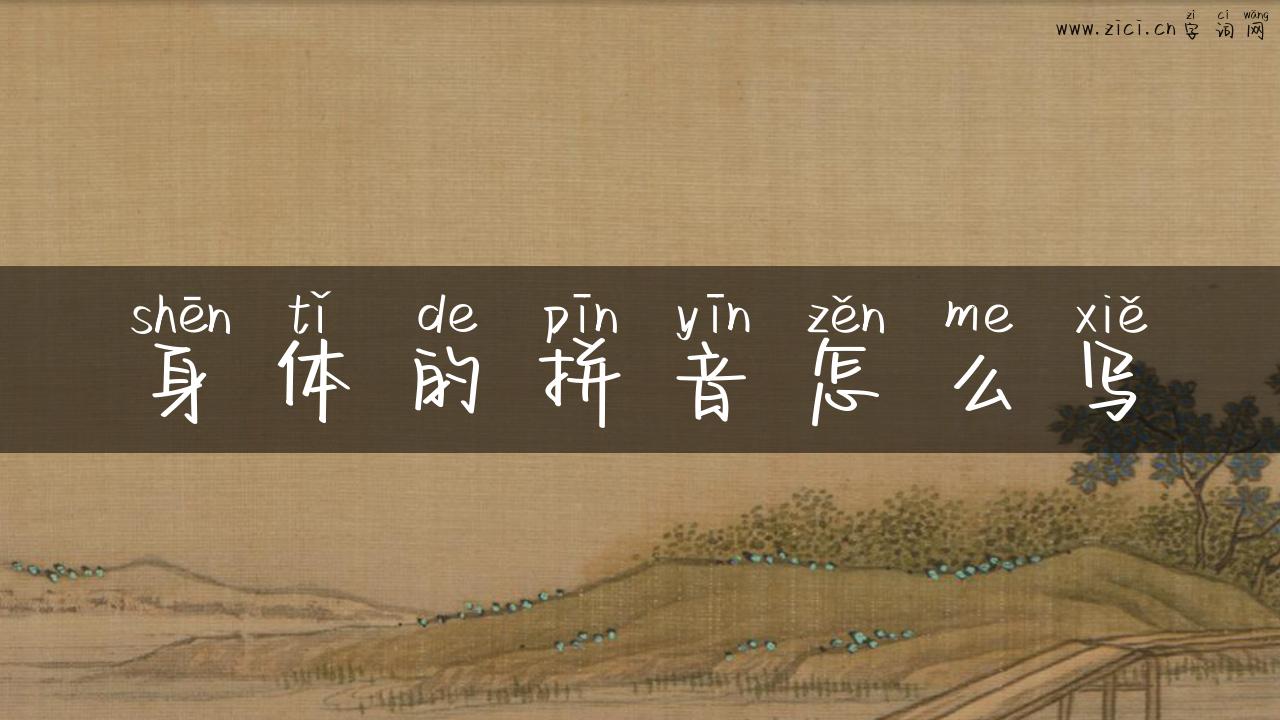 zì cí wǎng
www.zici.cn 字词网
shēn tǐ de pīn yīn zěn me xiě
身体的拼音怎么写